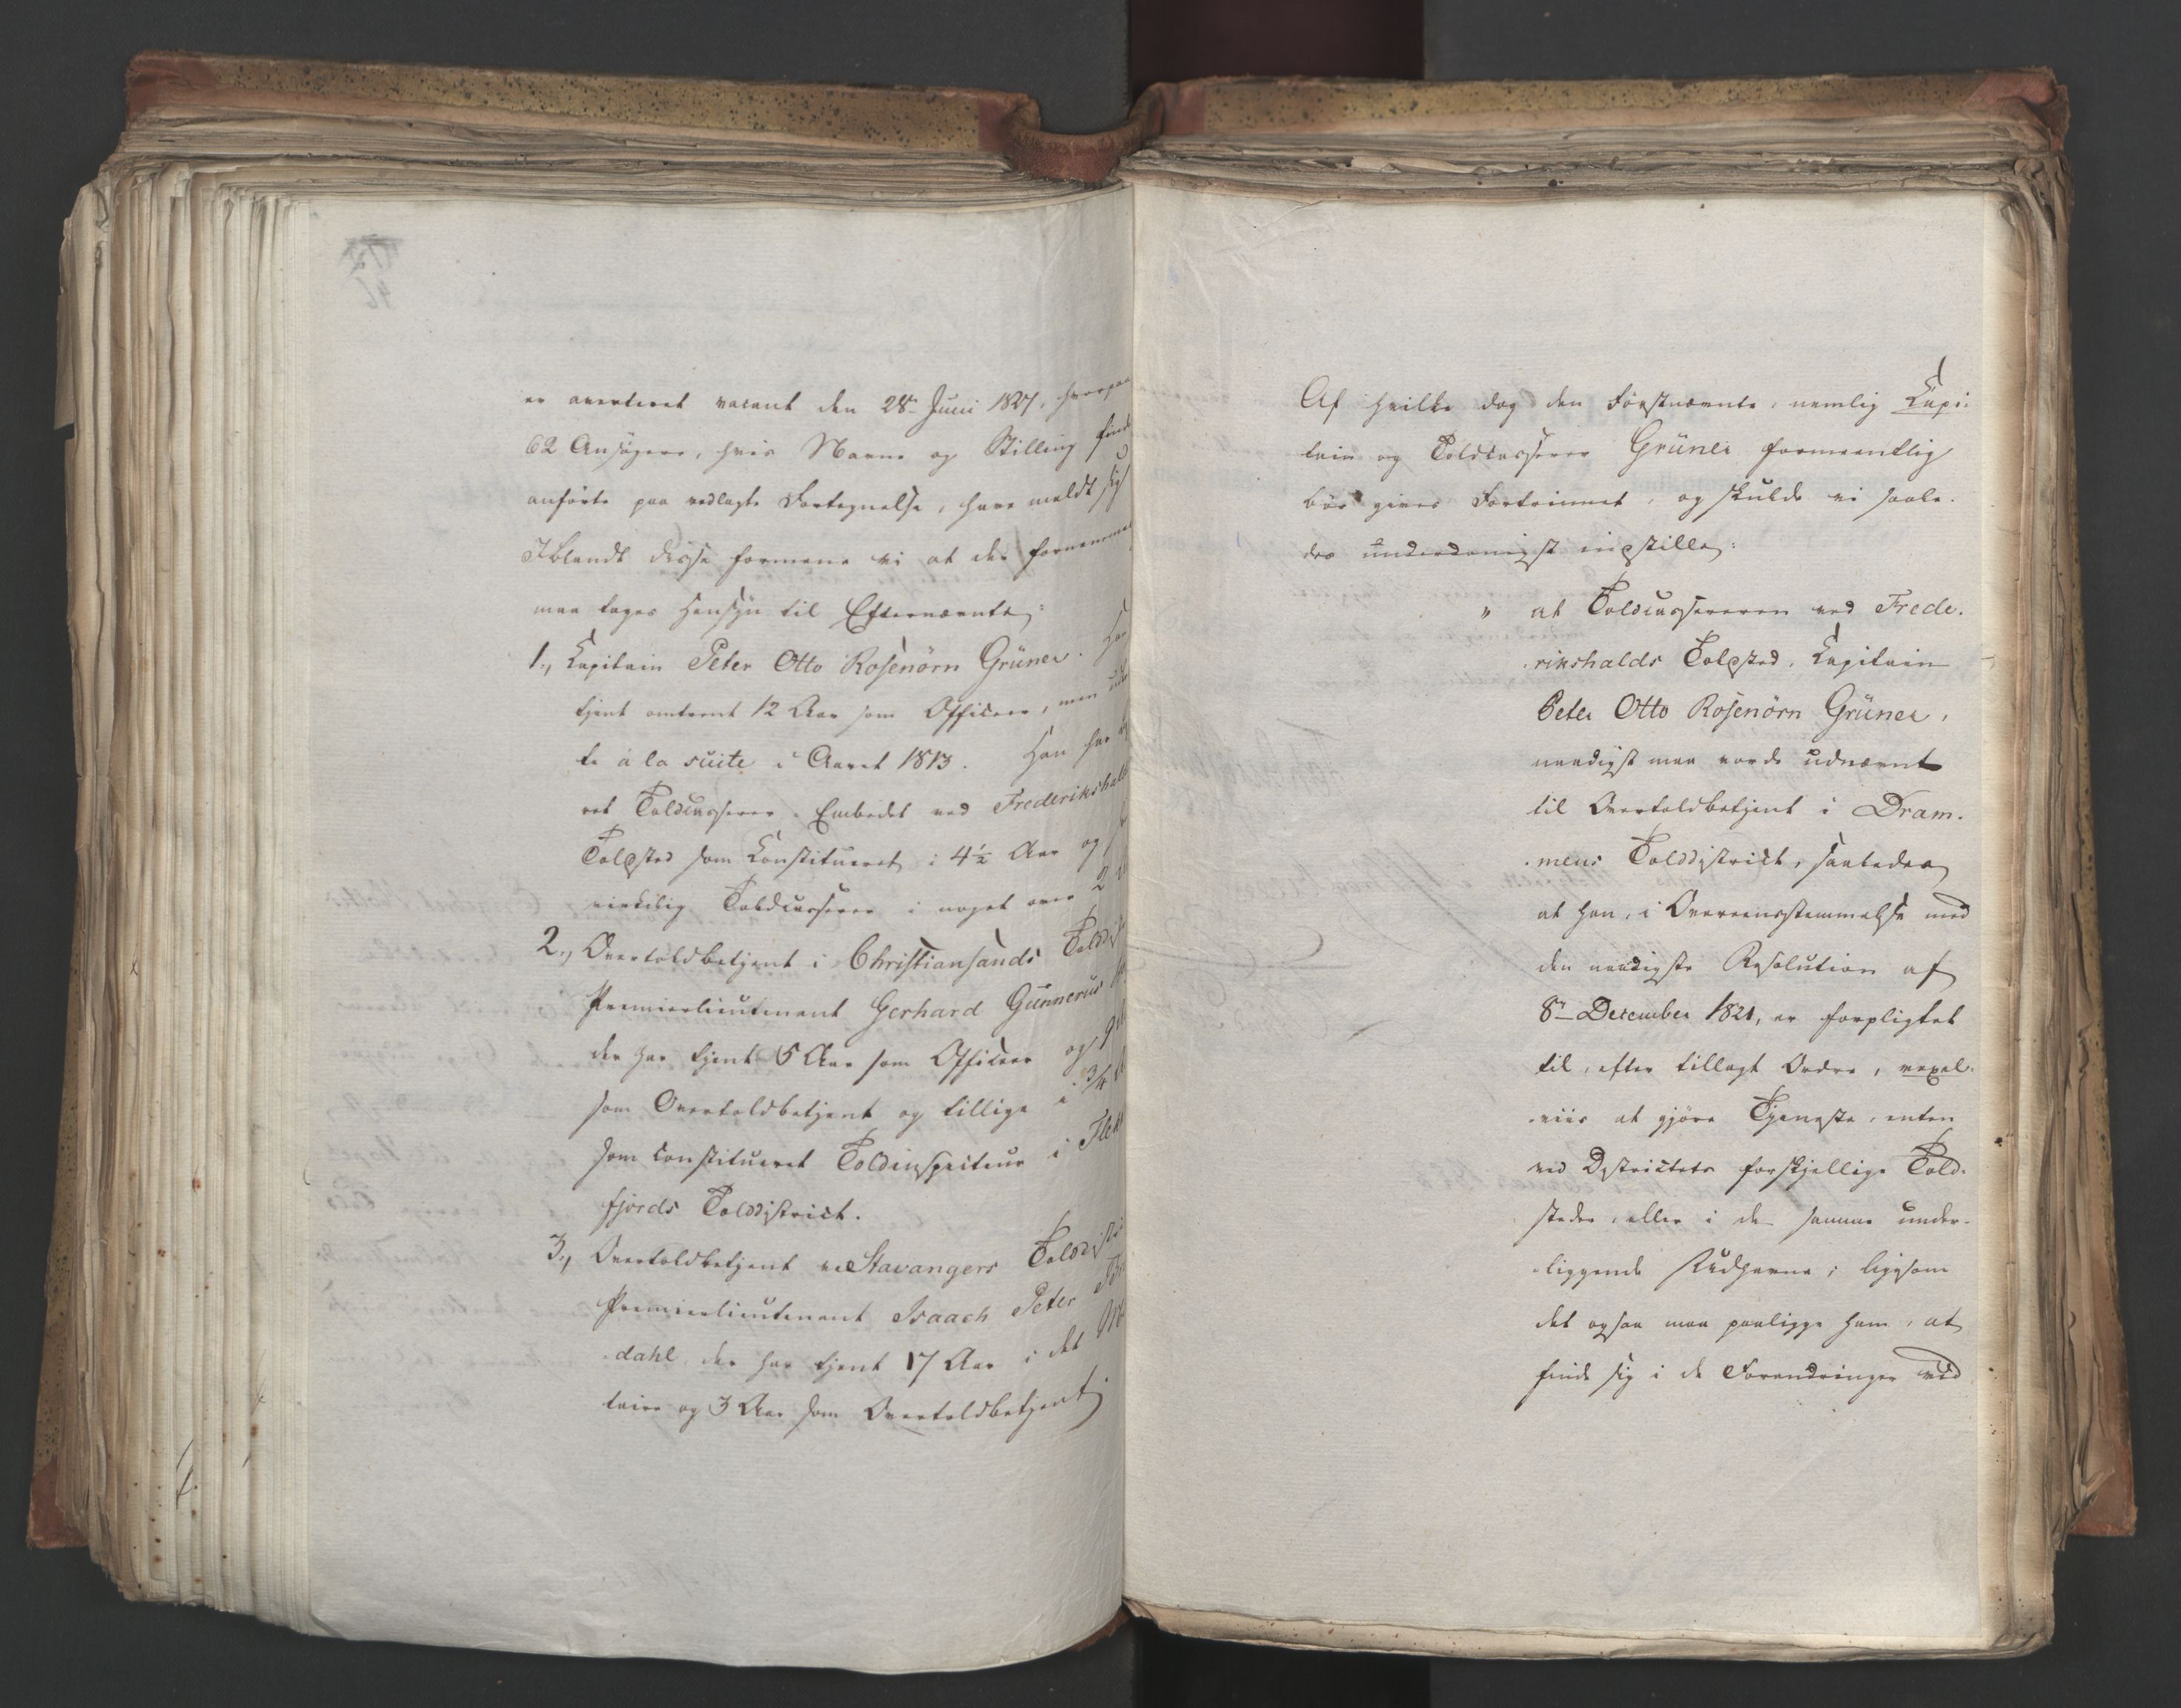 er averteret vacant den 28de Juni 1827, hvorpaa
62 Ansøgere, hvis Navne og Stilling find
anførte paa vedlagte Fortegnelse, have meldt sig
Iblandt disse formene vi at der
maa tages Hensyn til Efternævnte:
1., Capitain Peter Otto Rosenörn Grüner. Har
tjent omtrent 12 Aar som Officeer, men
te à la suite i Aaret 1813. Han har
ret Toldcasserer-Embedet ved Frederikshald
Toldsted som Constitueret i 4½ Aar og
virkelig Toldcasserer i noget over 2
2., Overtoldbetjent i Christiansands Toldd
Premierlieutenant Gerhard Gunnerus
der har tjent 5 Aar som Officeer og
som Overtoldbetjent og tillige i ¾
som constitueret Toldinspecteur i Flek
fjords Tolddistrict.
3., Overtoldbetjent i Stavangers Tolddist
Premierlieutenant Isaach Peter
dahl der har tjent 17 Aar i det
taire og 3 Aar som Overtoldbetjent;
Af hvilke dog den Førstnævnte, nemlig Capi-
tain og Toldcasserer Grüner formeentlig
bør gives Fortrinnet, og skulde vi saale-
des underdanigst indstille:
" at Toldcassereren ved Frede-
rikshalds Toldsted, Capitain
Peter Otto Rosenörn Grüner,
naadigst maa vorde udnævnt
til Overtoldbetjent i Dram-
mens Tolddistrict, saaledes
at han, i Overeensstemmelse med
den naadigste Resolution af
8de December 1821, er forpligtet
til, efter tillagt Ordre, vexel-
viis at gjøre Tjeneste, enten
ved Districtets forskjellige Told-
steder, eller i de samme under-
liggende Udhavne; ligesom
det ogsaa maa paaligge ham, at
finde sig i de Forandringer ved